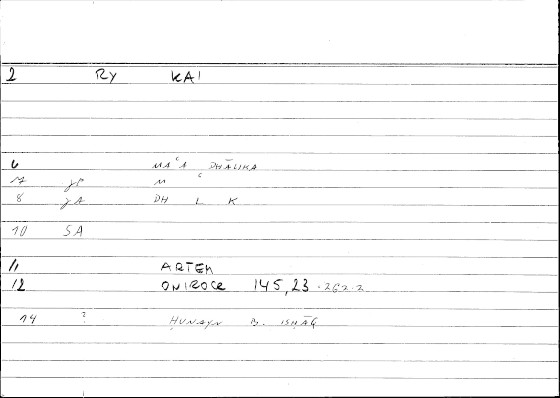 2 RY KAI
6 MAʿA DHĀLIKA
7 yr M ʿ
8 yA DH L K
10 SA
11 ARTEM
12 ONIROCR 145,23 - 262.2
14 ? ḤUNAYN B. ISḤĀQ